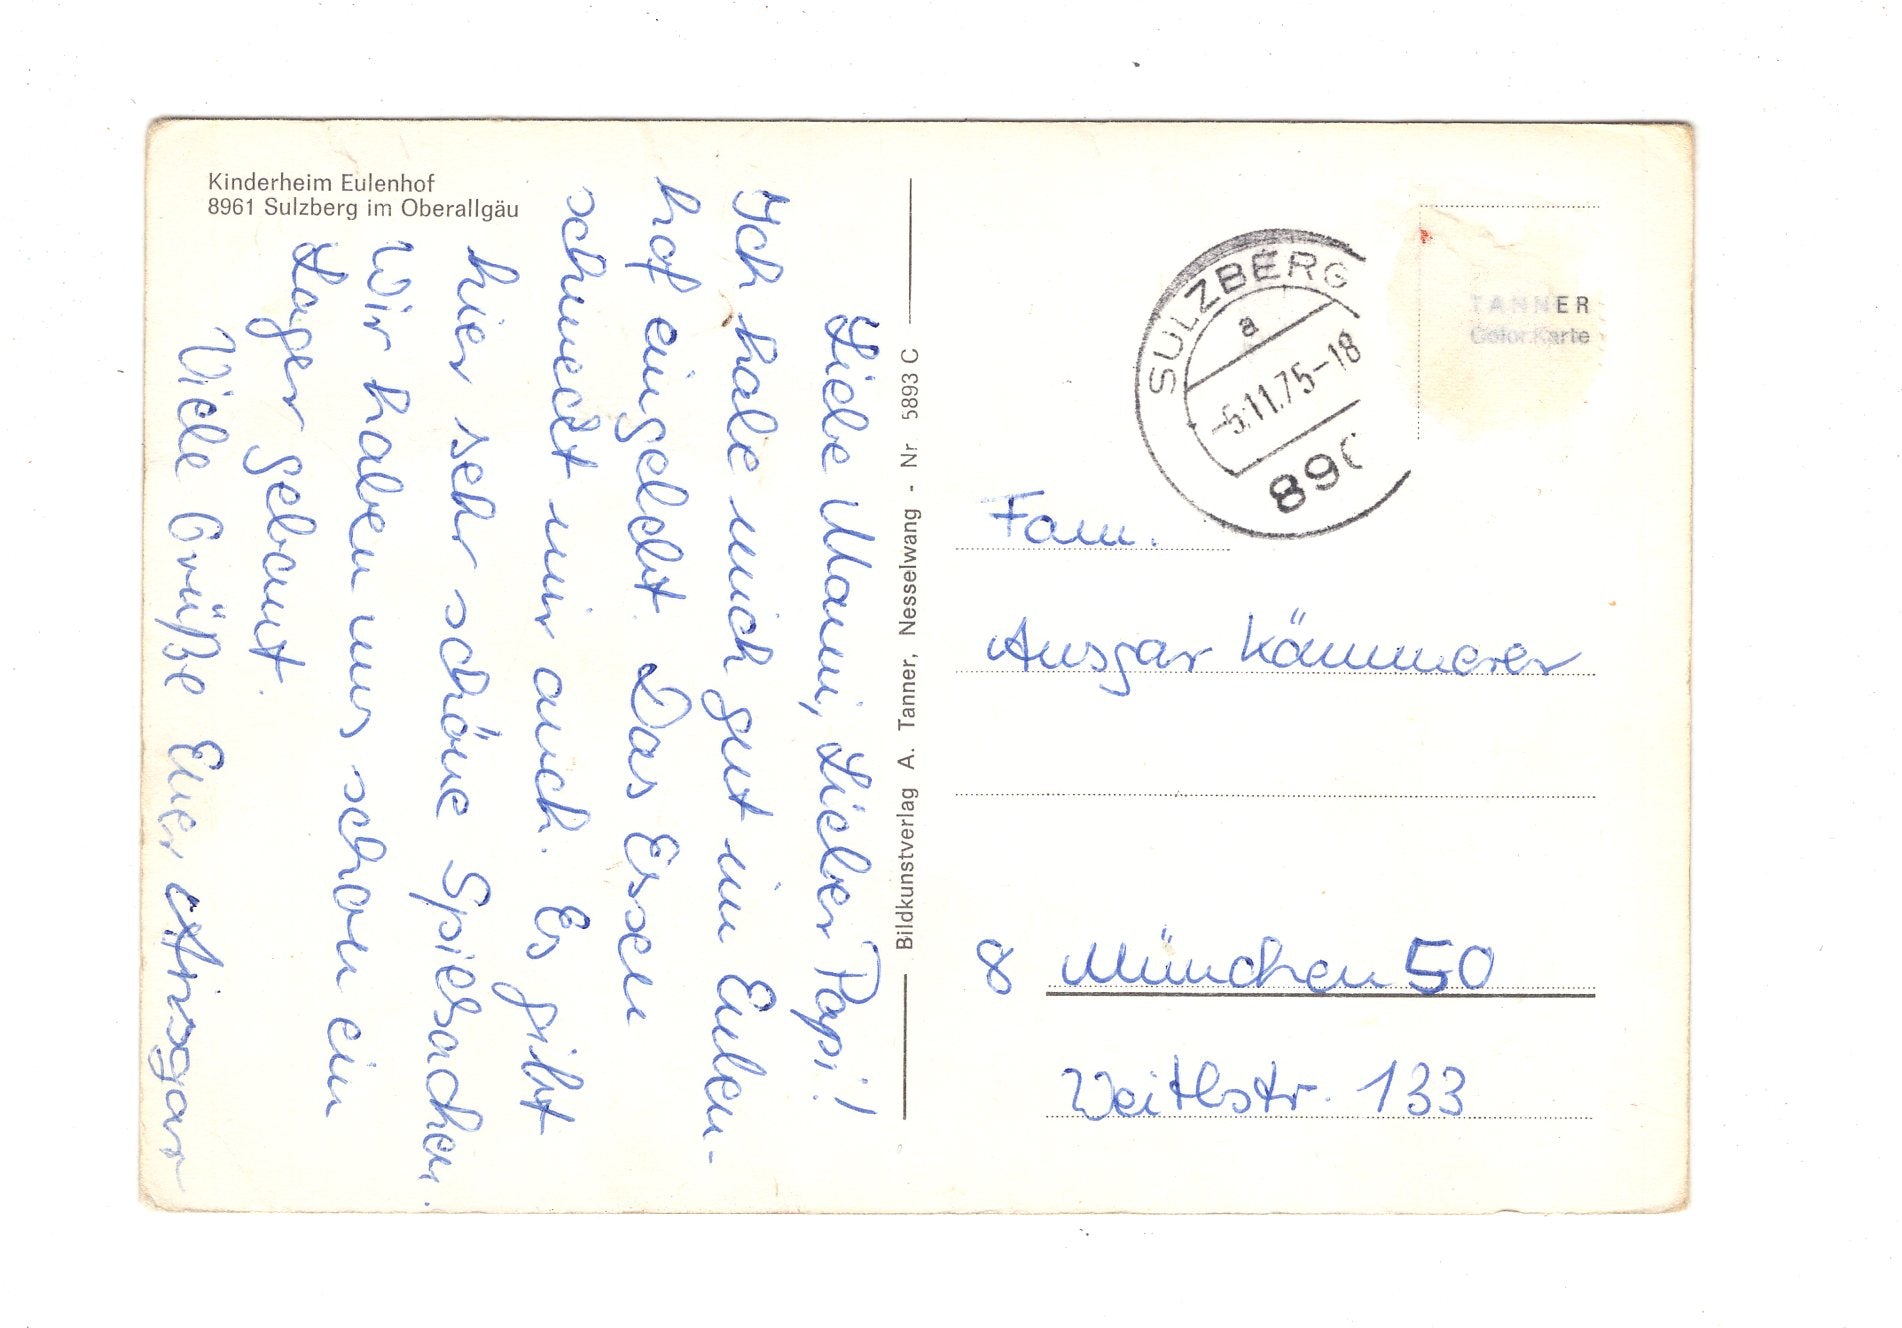 Kinderheim Eulenhof
8961 Sulzberg im Oberallgäu
Liebe Mami, Lieber Papi!
Ich habe mich gut im Eulen-
hof eingelebt. Das Essen
schmeckt mir auch. Es gibt
hier sehr schöne Spielsachen.
Wir haben uns schon ein
Lager gebaut.
Viele Grüße Euer Ansgar
Bildkunstverlag A. Tanner, Nesselwang - Nr 5893 C
SULZBERG
a
-5.11.75-18
896
TANNER
Color-Karte
Fam.
Ansgar Kämmerer
8 München 50
Weitlstr. 133